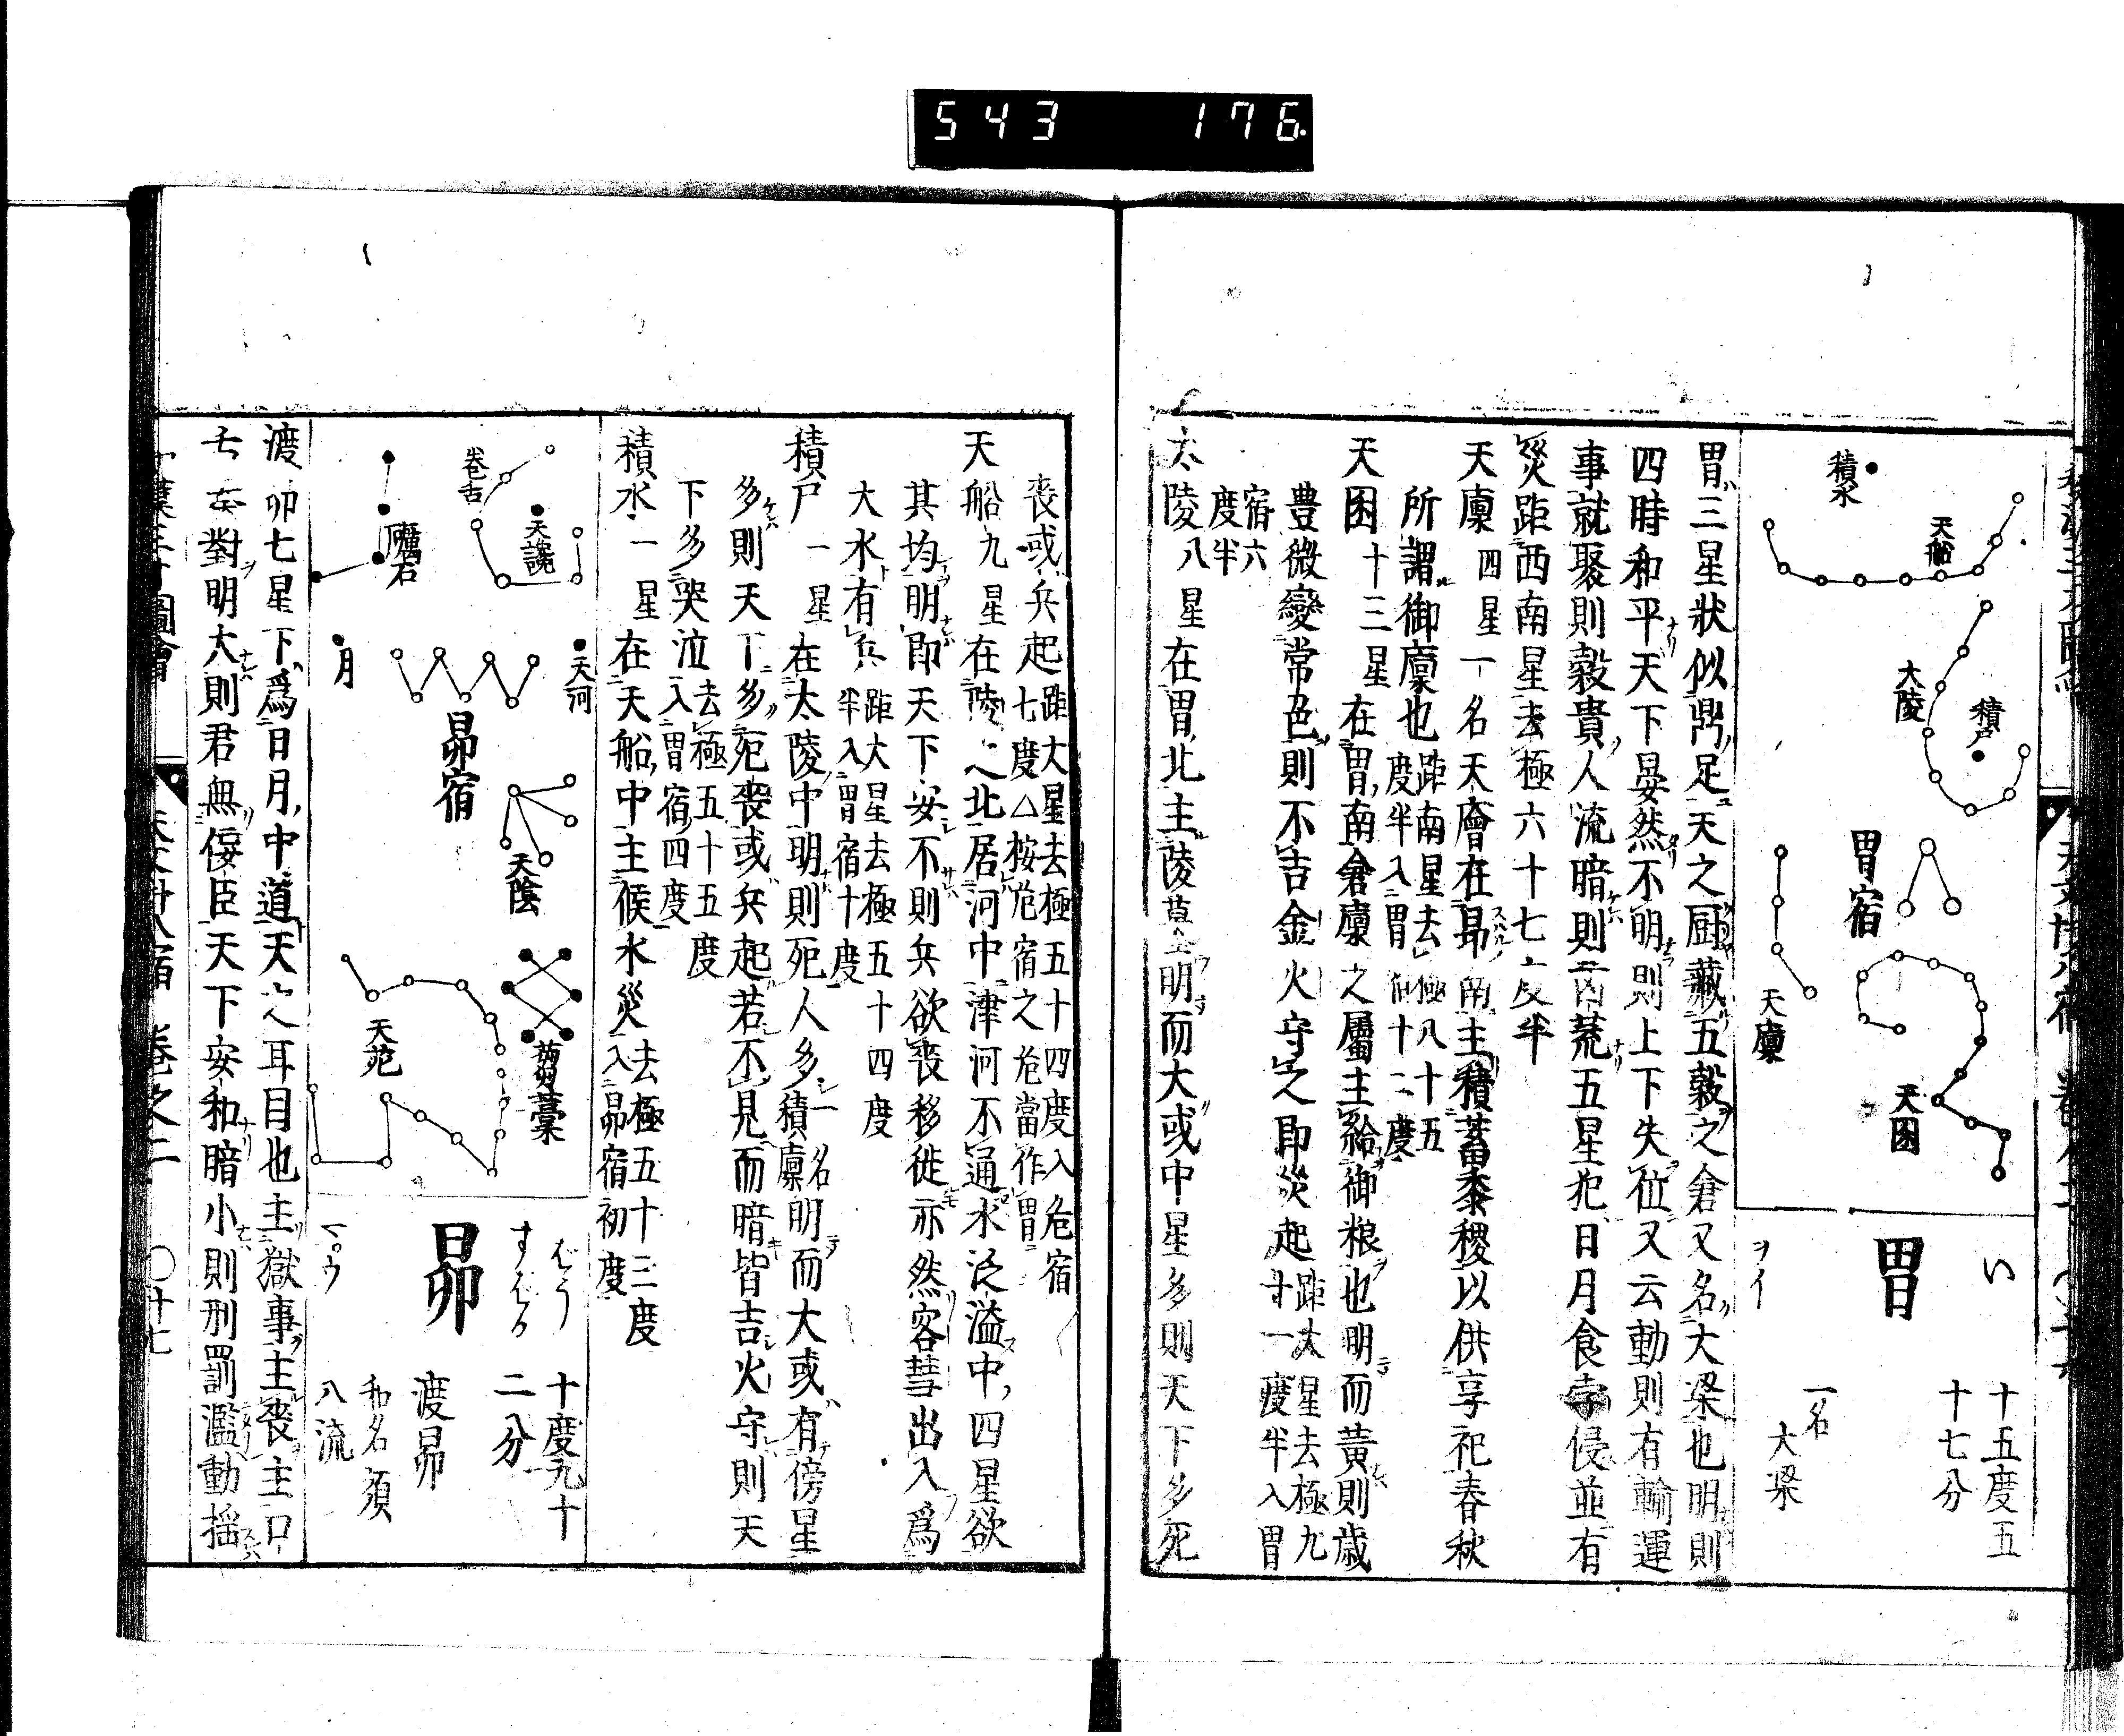 543 176
積水
天船
大陵
積尸
胃宿
天廩
天囷
胃
い
ヲイ
十五度五
十七分
一名
大梁
胃三星狀似鼎足天之厨藏五穀之倉又名大梁也明則
四時和平天下晏然不明則上下失位又云動則有輸運
事就聚則穀貴人流暗則凶荒五星犯日月食孛侵並有
災距西南星去極六十七度半
天廩四星一名天廥在昴南主積蓄黍稷以供享祀春秋
所謂御廩也距南星去極八十五
度半入胃宿十二度
天囷十三星在胃南倉廩之屬主給御粮也明而黃則歲
豊微變常色則不吉金火守之即災起距大星去極九
十一度半入胃
宿六
度半
太陵八星在胃北主陵墓明而大或中星多則天下多死
喪或兵起距大星去極五十四度入危宿
七度△桉危宿之危當作胃
天船九星在陵之北居河中津河不通水泛溢中四星欲
其均明即天下安不則兵欲喪移徙亦然客彗出入爲
大水有兵距大星去極五十四度
半入胃宿十度
積尸一星在太陵中明則死人多積一名
廩明而大或有傍星
多則天下多死喪或兵起若不見而暗皆吉火守則天
下多哭泣去極五十五度
入胃宿四度
積水一星在天船中主候水災去極五十三度
入昴宿初度
卷舌
天讒
礪石
天河
月
昴宿
天陰
蒭藁
天苑
昴
ばう
すばる
十度九十
二分
渡昴
和名須
八流
渡卯七星下爲日月中道天之耳目也主獄事主喪主口
舌奏對明大則君無佞臣天下安和暗小則刑罰濫動揺
天文廿八宿 卷之二 〇十七